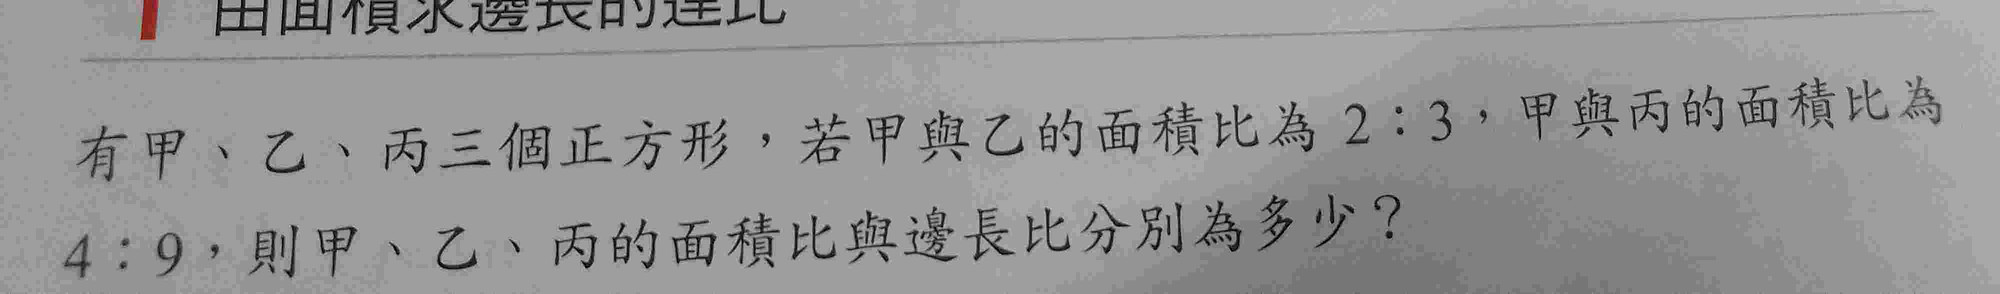 1 由面積求邊長的連比
有甲、乙、丙三個正方形，若甲與乙的面積比為 2：3，甲與丙的面積比為
4：9，則甲、乙、丙的面積比與邊長比分別為多少？